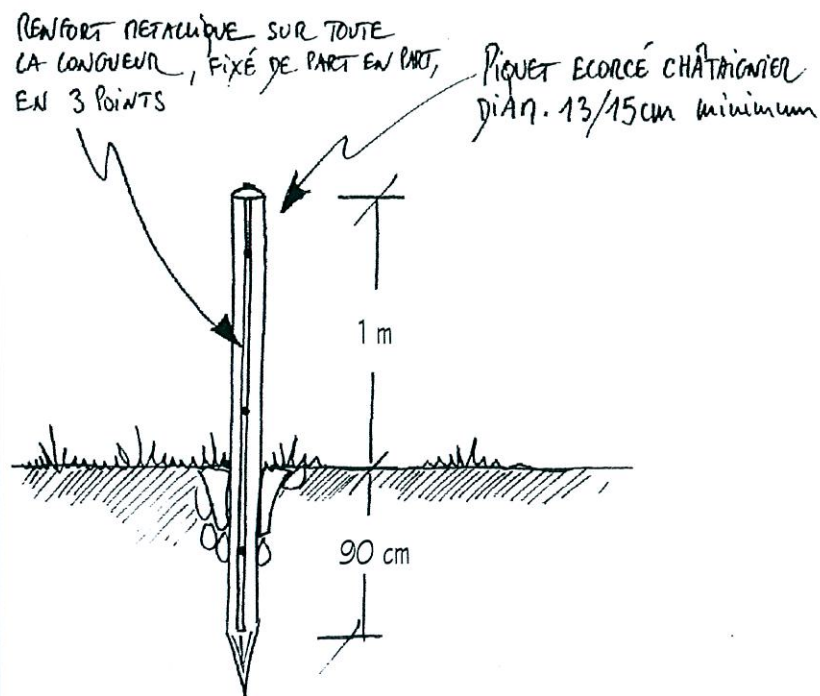 RENFORT METALLIQUE SUR TOUTE
LA LONGUEUR, FIXÉ DE PART EN PART,
EN 3 POINTS
PIQUET ECORCÉ CHÂTAIGNIER
DIAM. 13/15cm minimum
1 m
90 cm